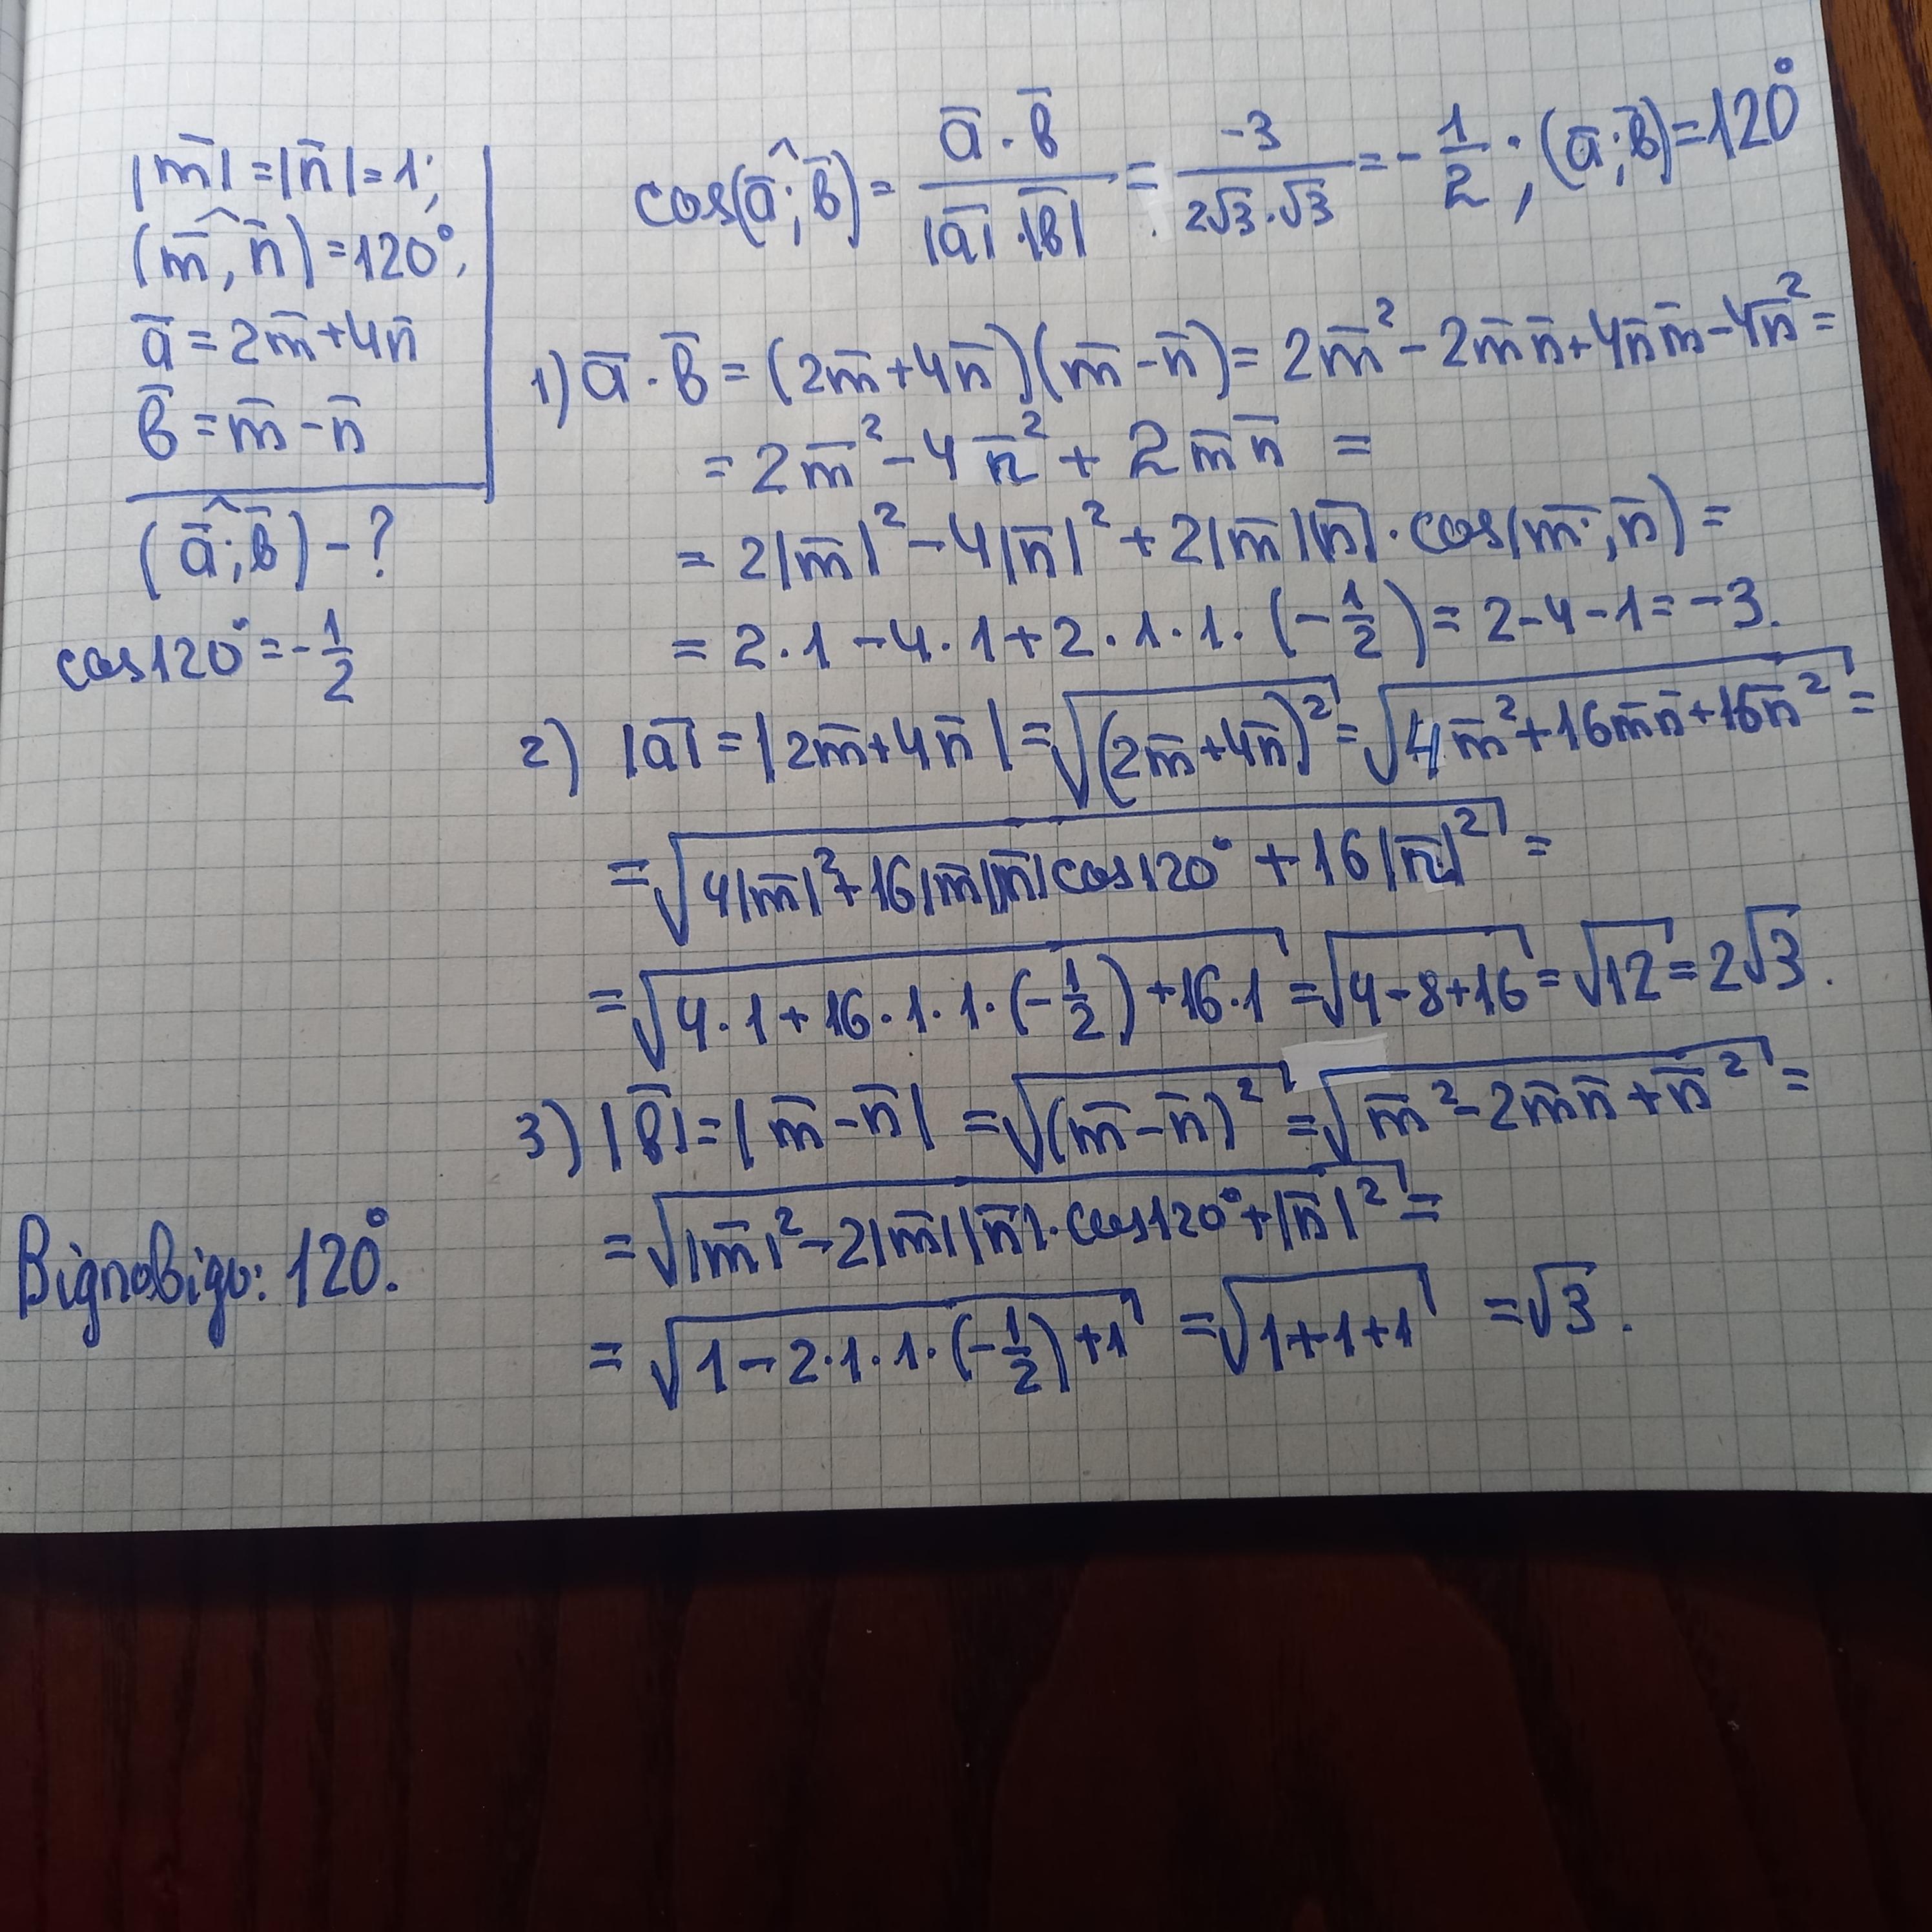 |m̅| = |n̅| = 1;
(m̅,^ n̅) = 120°,
a̅ = 2m̅ + 4n̅
b̅ = m̅ - n̅
(a̅;^ b̅) - ?
cos120° = -1/2
cos(a̅;^ b̅) = (a̅ · b̅)/(|a̅| · |b̅|) = -3/(2√3 · √3) = -1/2; (a̅; b̅) = 120°
1) a̅ · b̅ = (2m̅ + 4n̅)(m̅ - n̅) = 2m̅² - 2m̅n̅ + 4n̅m̅ - 4n̅² =
= 2m̅² - 4n̅² + 2m̅n̅ =
= 2|m̅|² - 4|n̅|² + 2|m̅||n̅| · cos(m̅; n̅) =
= 2·1 - 4·1 + 2·1·1·(-1/2) = 2-4-1 = -3.
2) |a̅| = |2m̅ + 4n̅| = √((2m̅ + 4n̅)²) = √(4m̅² + 16m̅n̅ + 16n̅²) =
= √(4|m̅|² + 16|m̅||n̅|cos120° + 16|n̅|²) =
= √(4·1 + 16·1·1·(-1/2) + 16·1) = √(4-8+16) = √12 = 2√3.
3) |b̅| = |m̅ - n̅| = √((m̅ - n̅)²) = √(m̅² - 2m̅n̅ + n̅²) =
= √(|m̅|² - 2|m̅||n̅| · cos120° + |n̅|²) =
= √(1 - 2·1·1·(-1/2) + 1) = √(1+1+1) = √3.
Відповідь: 120°.